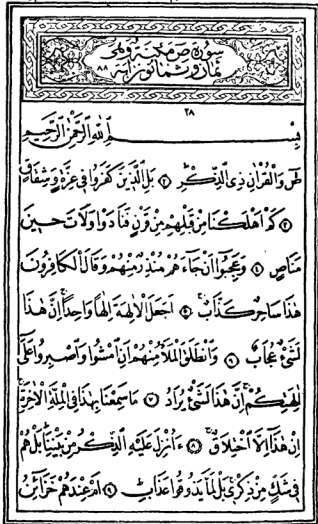 سورة ص مكية وهى
ثمان وثمانون اية ٨٨
٣٨
بِسْمِ اللهِ الرَّحْمٰنِ الرَّحِيمِ
صٓ وَالْقُرْاٰنِ ذِى الذِّكْرِ ۝٢ بَلِ الَّذِينَ كَفَرُوا فِى عِزَّةٍ وَشِقَاقٍ
۝٣ كَمْ اَهْلَكْنَا مِنْ قَبْلِهِمْ مِنْ قَرْنٍ فَنَادَوْا وَلَاتَ حِينَ
مَنَاصٍ ۝٤ وَعَجِبُوا اَنْ جَاءَهُمْ مُنْذِرٌ مِنْهُمْ وَقَالَ الْكَافِرُونَ
هٰذَا سَاحِرٌ كَذَّابٌ ۝٥ اَجَعَلَ الْاٰلِهَةَ اِلٰهًا وَاحِدًا اِنَّ هٰذَا
لَشَىْءٌ عُجَابٌ ۝٦ وَانْطَلَقَ الْمَلَاُ مِنْهُمْ اَنِ امْشُوا وَاصْبِرُوا عَلٰى
اٰلِهَتِكُمْ اِنَّ هٰذَا لَشَىْءٌ يُرَادُ ۝٧ مَا سَمِعْنَا بِهٰذَا فِى الْمِلَّةِ الْاٰخِرَةِ
اِنْ هٰذَا اِلَّا اخْتِلَاقٌ ۝٨ ءَاُنْزِلَ عَلَيْهِ الذِّكْرُ مِنْ بَيْنِنَا بَلْ هُمْ
فِى شَكٍّ مِنْ ذِكْرِى بَلْ لَمَّا يَذُوقُوا عَذَابِ ۝٩ اَمْ عِنْدَهُمْ خَزَائِنُ